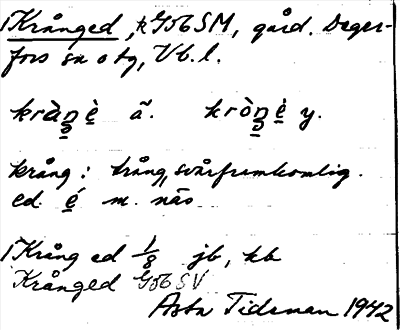 1Krånged, k G56 SM, gård. Deger-
fors sn o tg, Vb. l.
kràn̥è ã. kròn̥è y.
krång: trång, svårframkomlig.
ed. é m. näs
1Krång ed 1/8 jb, kb
Krånged G56 SV
Asta Tideman 1942